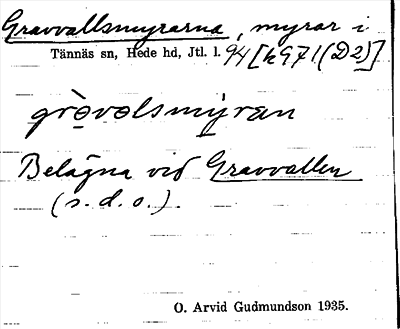 Gravvallsmyrarna, myror i
Tännäs sn, Hede hd, Jtl. l. 94 [kG71(D2)]
grə̀vəlsmyran
Belägna vid Gravvallen
(s.d.o.).
O. Arvid Gudmundson 1935.